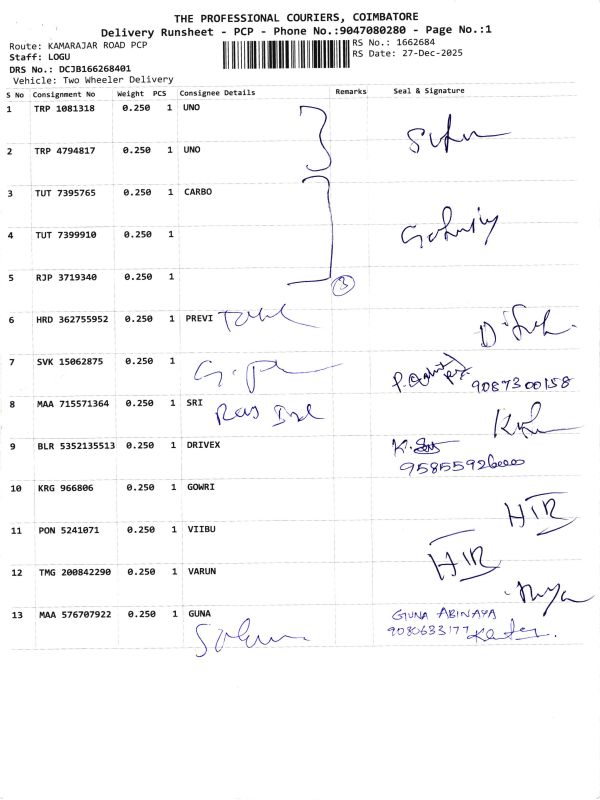 THE PROFESSIONAL COURIERS, COIMBATORE
Delivery Runsheet - PCP - Phone No.:9047080280 - Page No.:1
Route: KAMARAJAR ROAD PCP
RS No.: 1662684
Staff: LOGU
RS Date: 27-Dec-2025
DRS No.: DCJB166268401
Vehicle: Two Wheeler Delivery
S No Consignment No Weight PCS Consignee Details Remarks Seal & Signature
1 TRP 1081318 0.250 1 UNO
2 TRP 4794817 0.250 1 UNO
3 TUT 7395765 0.250 1 CARBO
4 TUT 7399910 0.250 1
5 RJP 3719340 0.250 1
3
6 HRD 362755952 0.250 1 PREVI
7 SVK 15062875 0.250 1
9087300158
8 MAA 715571364 0.250 1 SRI
9 BLR 5352135513 0.250 1 DRIVEX
10 KRG 966806 0.250 1 GOWRI
11 PON 5241071 0.250 1 VIIBU
12 TMG 200842290 0.250 1 VARUN
13 MAA 576707922 0.250 1 GUNA GUNA ABINAYA
9080633177